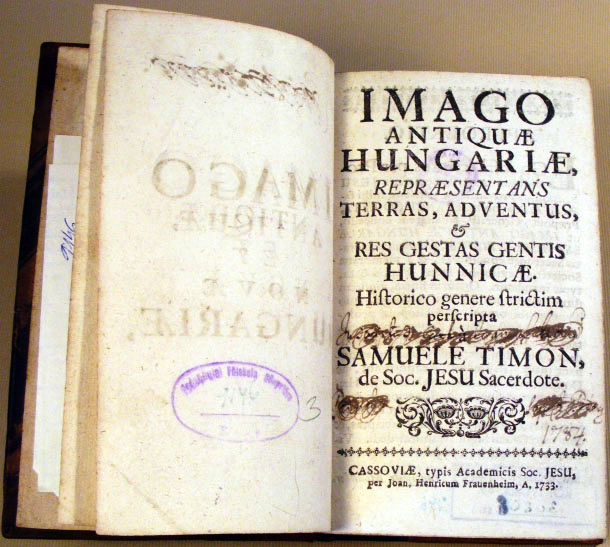 IMAGO
ANTIQUÆ
ET
NOVÆ
HUNGARIÆ
3
IMAGO
ANTIQUÆ
HUNGARIÆ,
REPRÆSENTANS
TERRAS, ADVENTUS,
&
RES GESTAS GENTIS
HUNNICÆ.
Hiſtorico genere ſtrictim
perſcripta
à
SAMUELE TIMON,
de Soc. JESU Sacerdote.
1737.
CASSOVIÆ, typis Academicis Soc. JESU,
per Joan. Henricum Frauenheim, A. 1733.